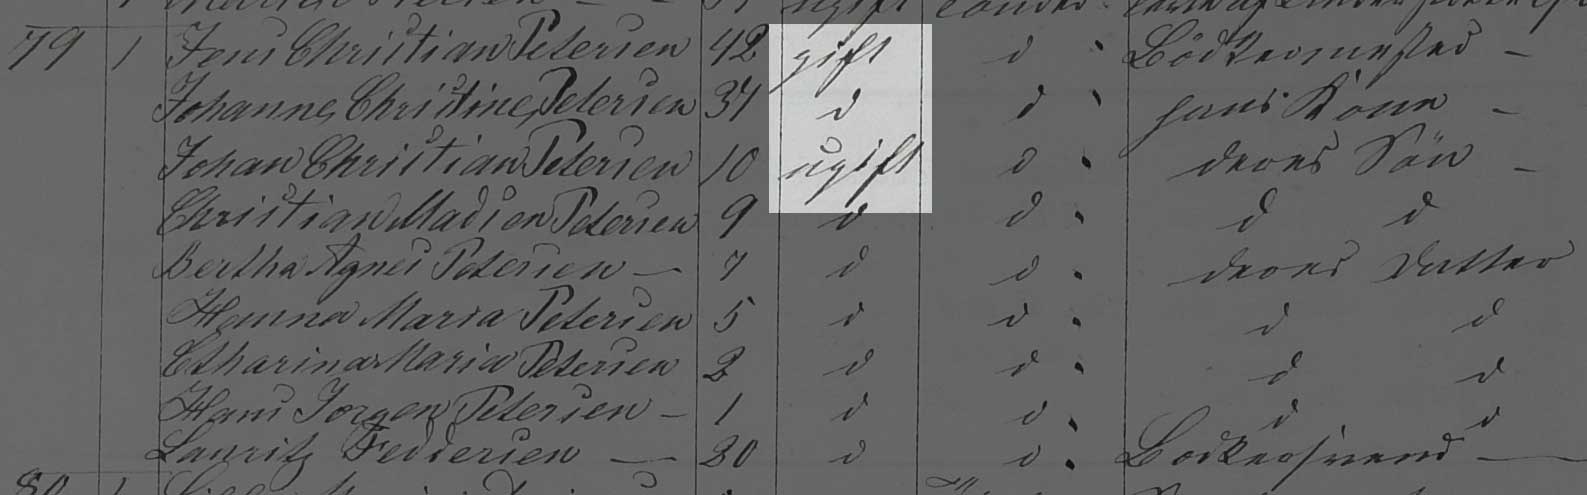 79 1 Jens Christian Petersen 42 gift d Bödkermester -
Johanne Christine Petersen 37 d d hans Kone -
Johan Christian Petersen 10 ugift d deres Sön -
Christian Madsen Petersen 9 d d d d
Bertha Agnes Petersen - 7 d d deres Datter
Hanna Maria Petersen 5 d d d d
Catharina Maria Petersen 2 d d d d
Hans Jorgen Petersen - 1 d d d d
Lauritz Feddersen - 20 d d Bodkersvend -
80 1